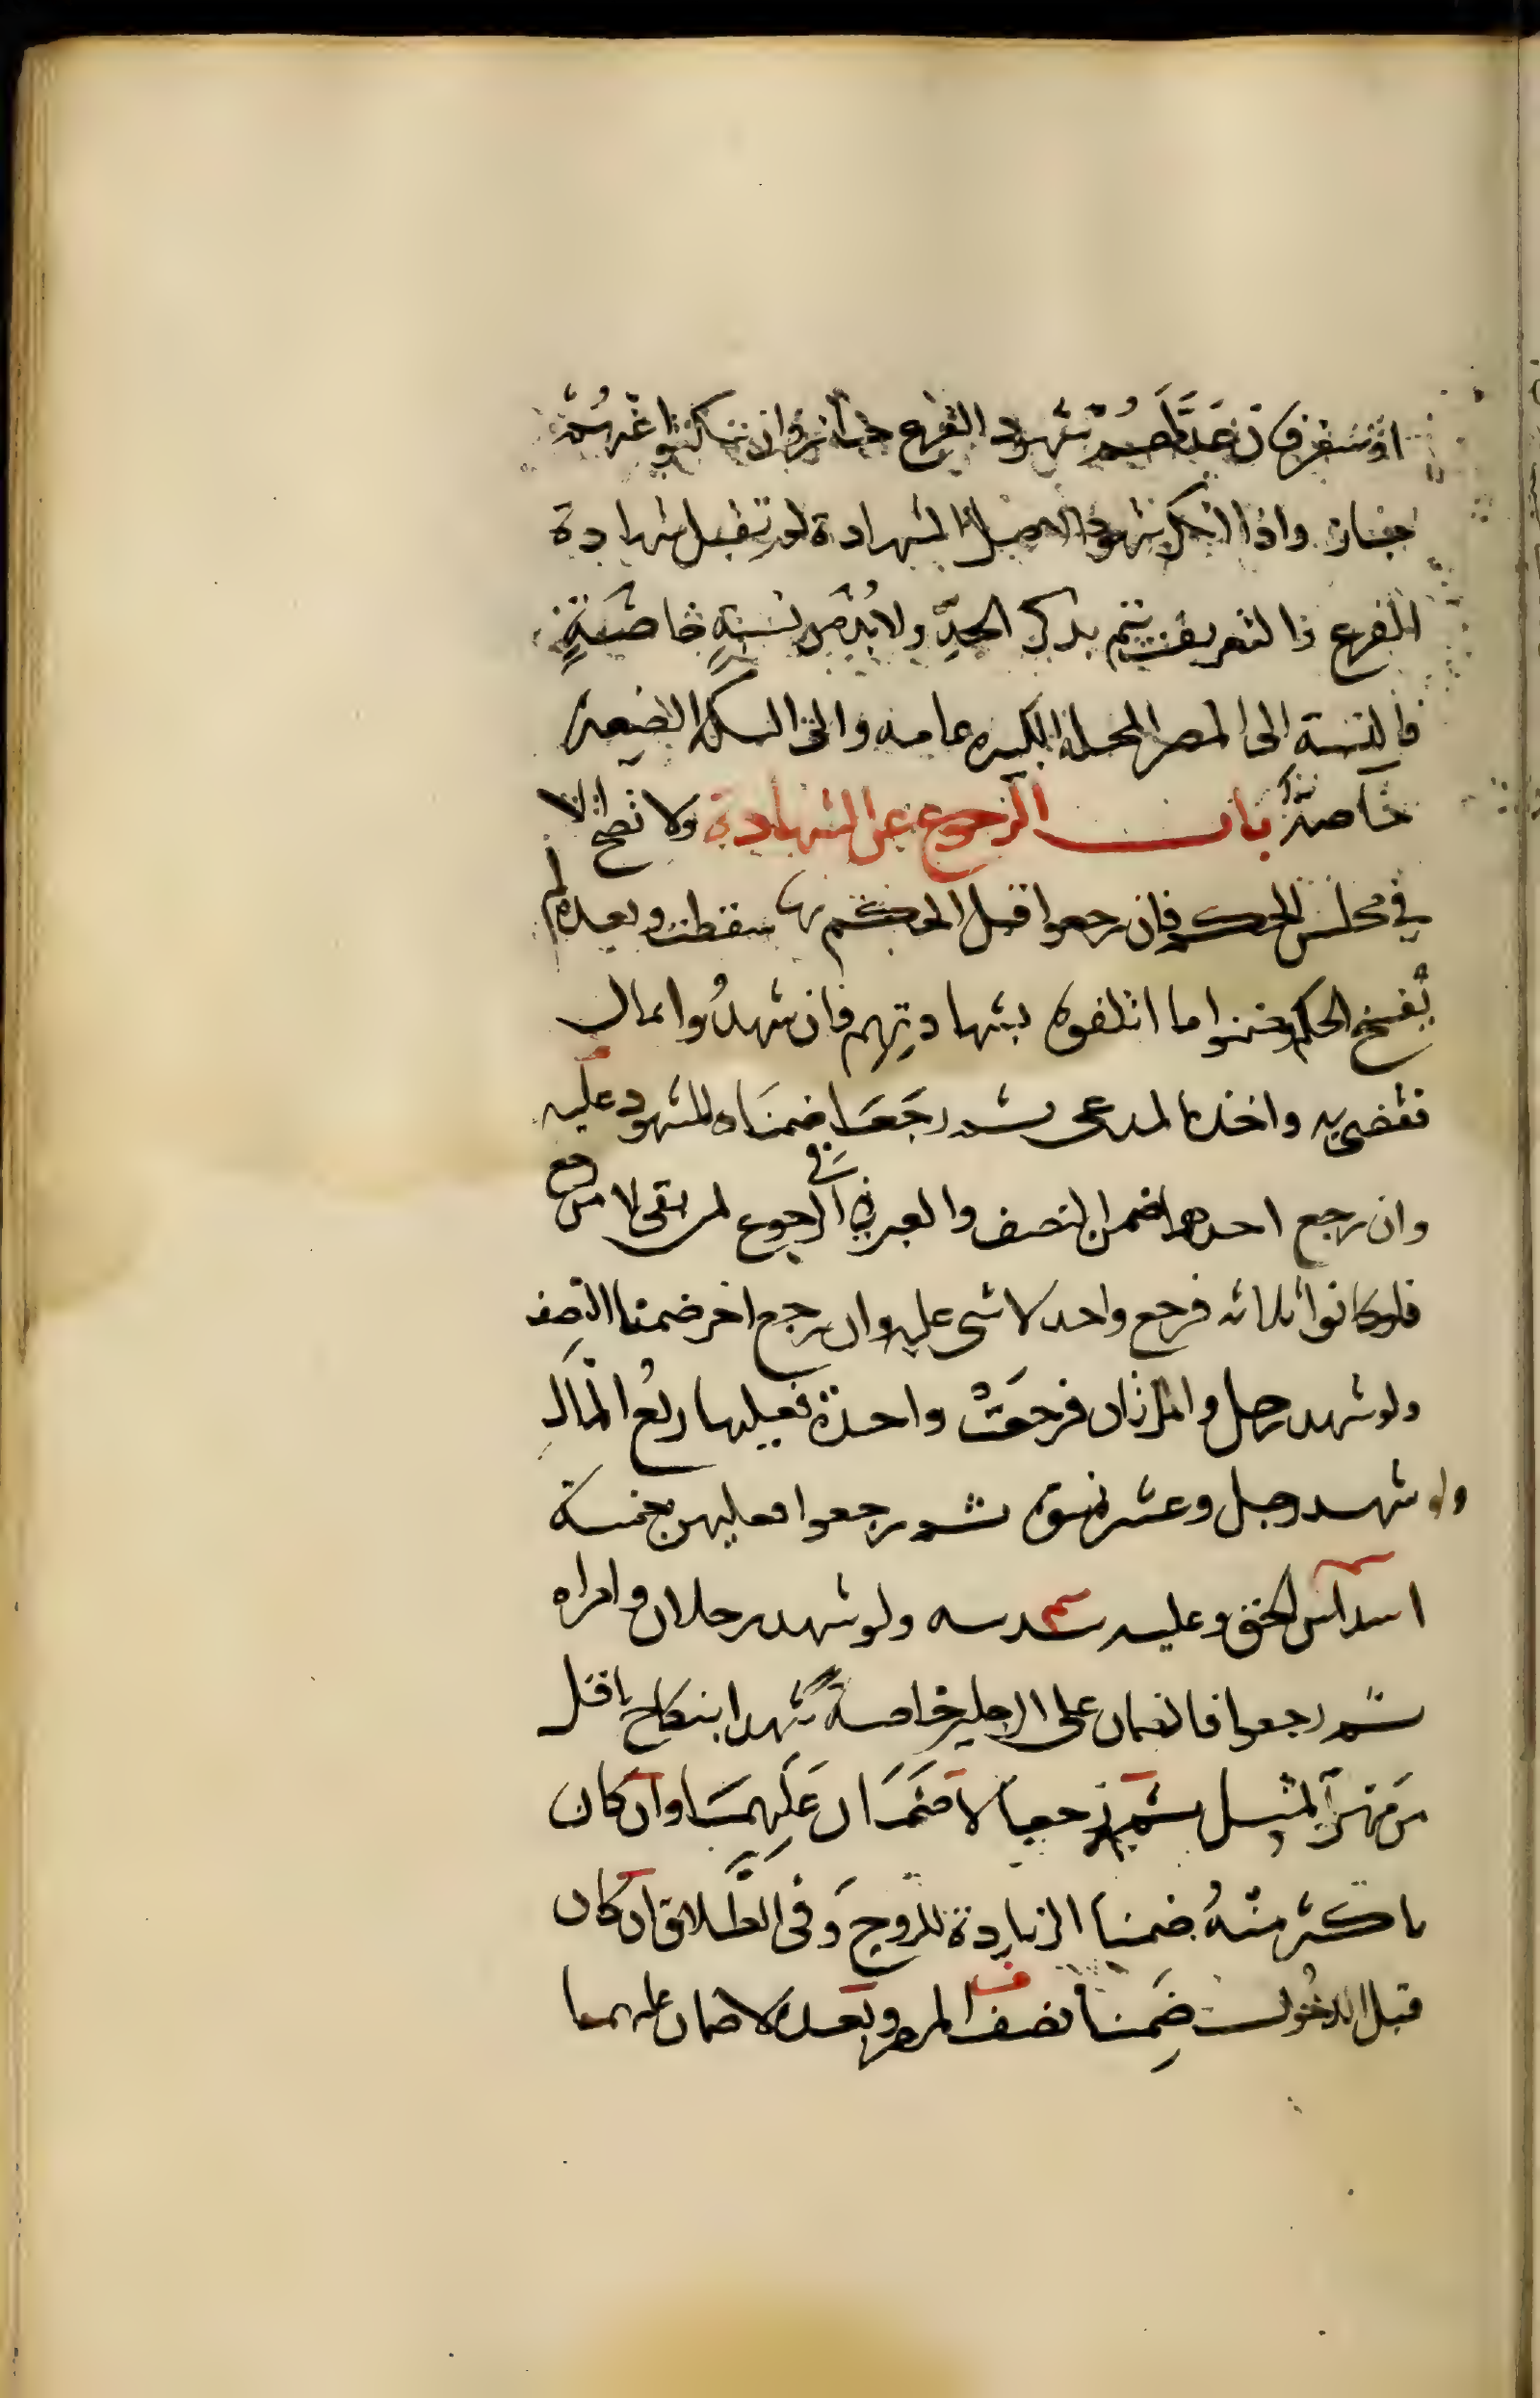 او سفر فان عدلهم شهود الفرع جاز وان سكتوا عنهم
جاز واذا انكر شهود الاصل الشهادة لم تقبل شهادة
الفرع والتعريف يتم بذكر الجد ولا بد من نسبة خاصة
فالنسبة الى المصر المحلة الكبيره عامه والى السكة الصغيرة
خاصة باب الرجوع عن الشهادة ولا تصح الا
في مجلس الحكم فان رجعوا قبل الحكم بها سقطت وبعده لم
يفسخ الحكم وضمنوا ما اتلفوه بشهادتهم فان شهدوا بمال
فقضى به واخذه المدعى ثم رجعا ضمناه للمشهود عليه
وان رجع احدهما ضمن النصف والعبرة في الرجوع لمن بقى لا من رجع
فلو كانوا ثلاثه فرجع واحد لا شى عليه وان رجع اخر ضمنا النصف
ولو شهد رجل وامراتان فرجعت واحدة فعليها ربع المال
ولو شهد رجل وعشر نسوة ثم رجعوا فعليهن خمسة
اسداس الحق وعليه سدسه ولو شهد رجلان وامراه
ثم رجعوا فالضمان على الرجلين خاصة شهدا بنكاح باقل
من مهر المثل ثم رجعا لا ضمان عليهما وان كان
باكثر منه ضمنا الزيادة للزوج وفى الطلاق ان كان
قبل الدخول ضمنا نصف المهر وبعده لا ضمان عليهما